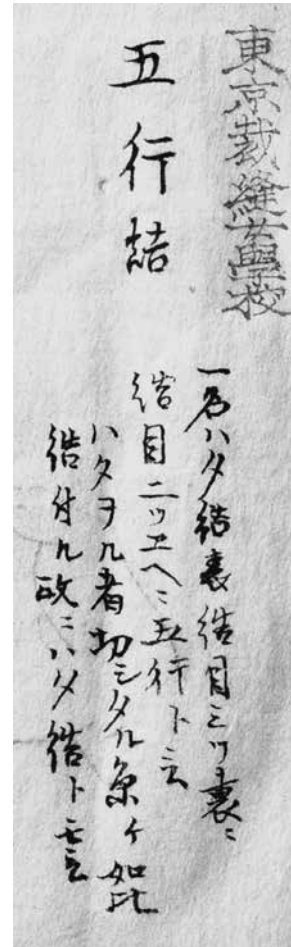 東京裁縫女學校
五行結
一名ハタ結表結目三ツ裏ニ
結目二ツユヘニ五行ト云
ハタヲル者切シタル糸ヲ如此
結付ル故ニハタ結ト云